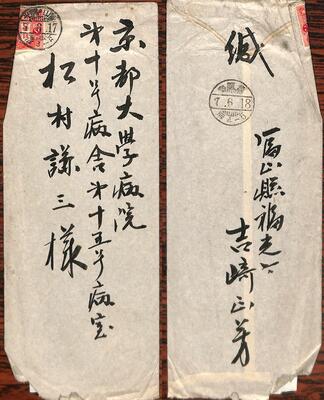 京都大學病院
第十号病舎第十五号病室
松村謙三様
緘
7.6.18
富山縣福光
吉崎正芳